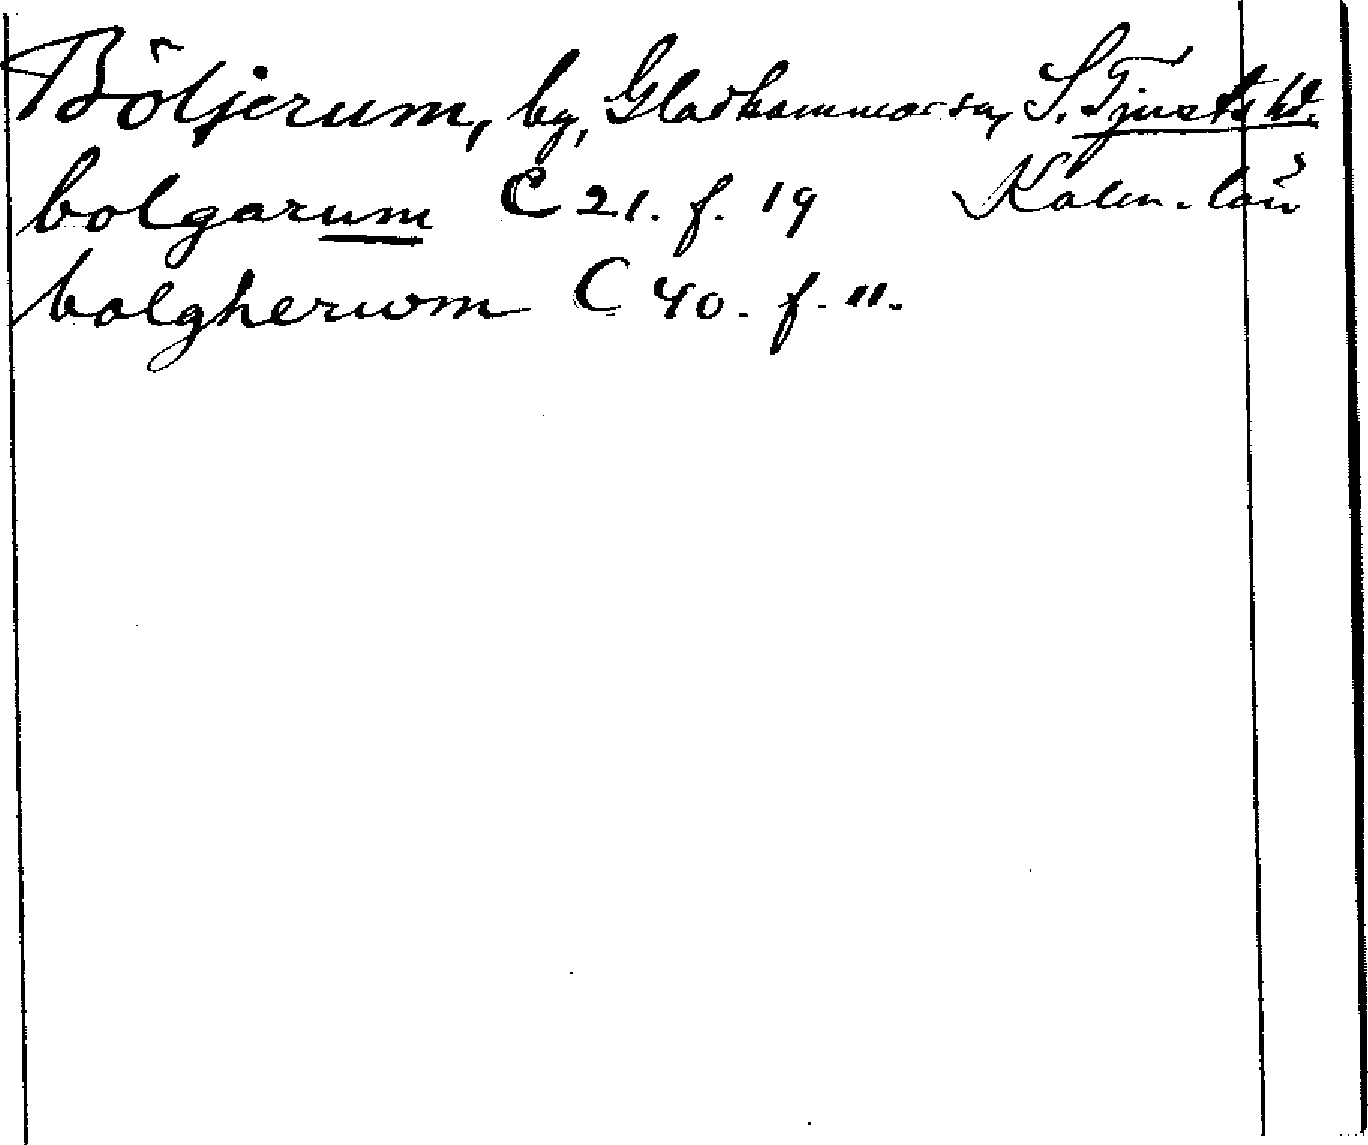 Böljerum, by, Gladhammar sn, S. Tjusts hd.
bolgarum C 21. f. 19 Kalm. län
bolgherwm C 40. f. 11.